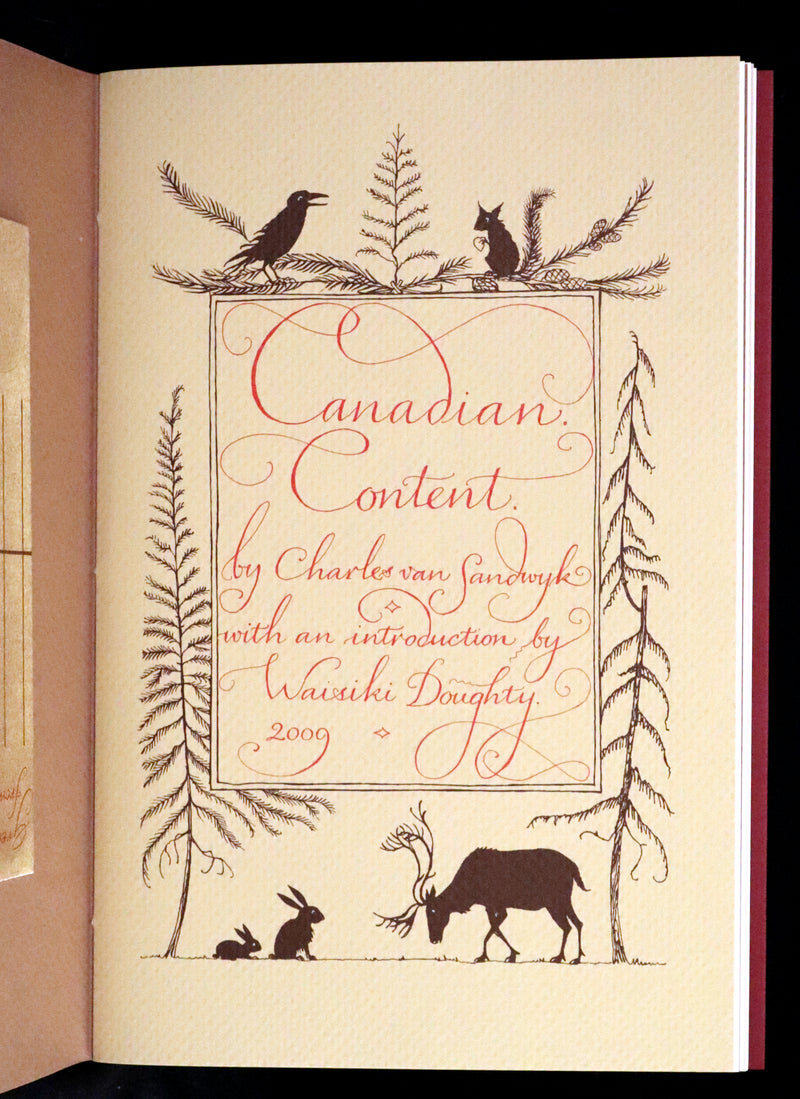 Canadian.
Content.
by Charles van Sandwyk
with an introduction by
Waisiki Doughty.
2009